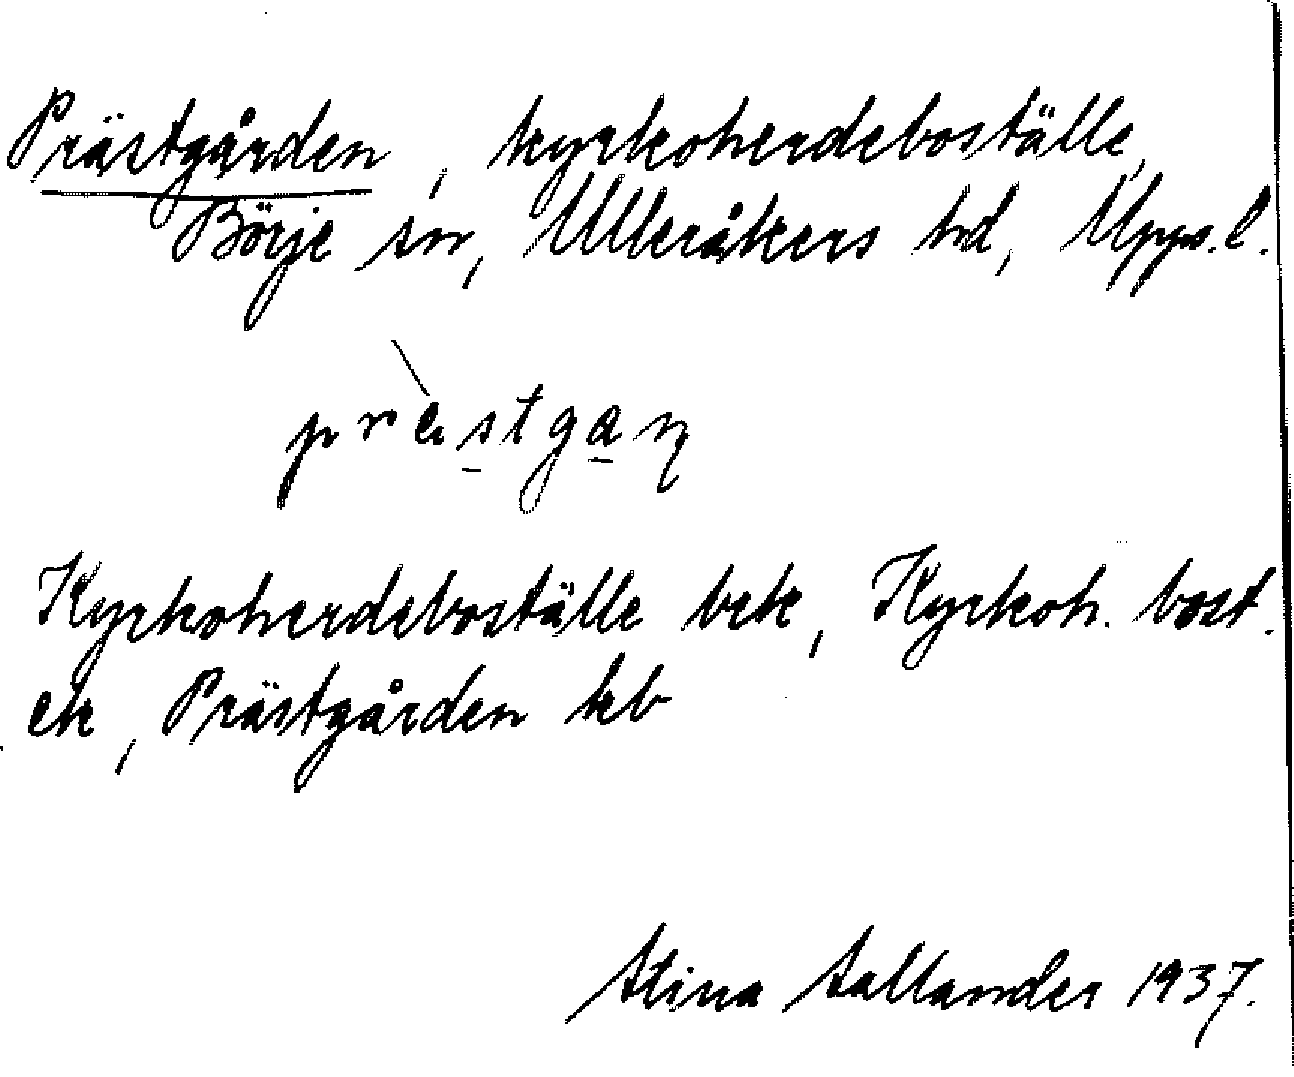 Prästgården, kyrkoherdeboställe,
Börje sn, Ulleråkers hd, Upps. l.
prästgaɳ
Kyrkoherdeboställe bek, Kyrkoh. bost.
ek, Prästgården kb
Stina Sallander 1937.